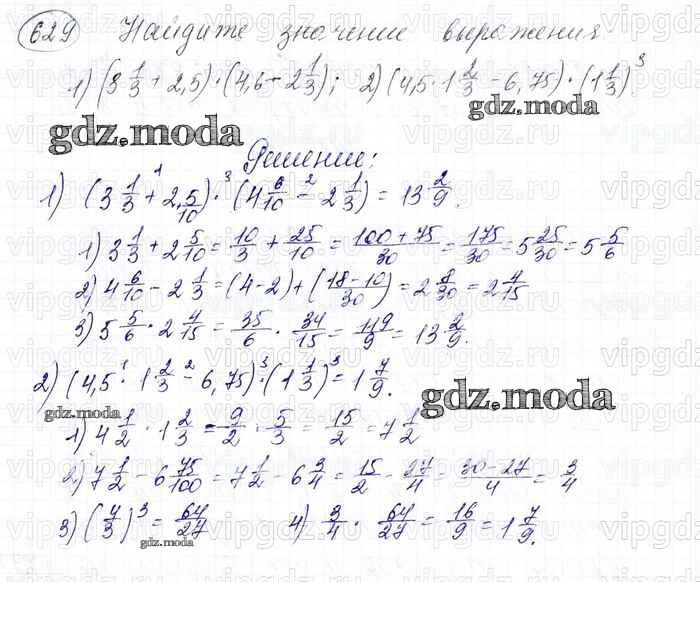 629 Найдите значение выражения
1) (3 1/3 + 2,5) · (4,6 - 2 1/3); 2) (4,5 · 1 2/3 - 6,75) · (1 1/3)³
gdz.moda
gdz.moda
Решение:
1) (3 1/3 +¹ 2,5/10) ·³ (4 6/10 -² 2 1/3) = 13 2/9.
1) 3 1/3 + 2 5/10 = 10/3 + 25/10 = (100 + 75)/30 = 175/30 = 5 25/30 = 5 5/6
2) 4 6/10 - 2 1/3 = (4-2) + ((18-10)/30) = 2 8/30 = 2 4/15
3) 5 5/6 · 2 4/15 = 35/6 · 34/15 = 119/9 = 13 2/9.
2) (4,5 ·¹ 1 2/3 -² 6,75) ·³ (1 1/3)³ = 1 7/9.
gdz.moda
gdz.moda
1) 4 1/2 · 1 2/3 = 9/2 · 5/3 = 15/2 = 7 1/2
2) 7 1/2 - 6 75/100 = 7 1/2 - 6 3/4 = 15/2 - 27/4 = (30-27)/4 = 3/4
3) (4/3)³ = 64/27 4) 3/4 · 64/27 = 16/9 = 1 7/9.
gdz.moda